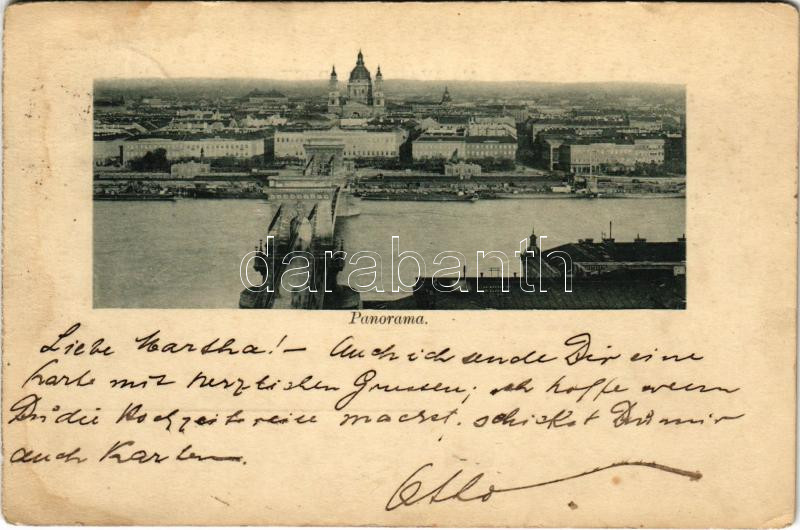 darabanth
Panorama.
Liebe Martha! – Auch ich sende Dir eine
Karte mit herzlichen Grussen; ich hoffe wenn
Du die Hochzeitsreise machst, schickst Du mir
auch Karten.
Otto